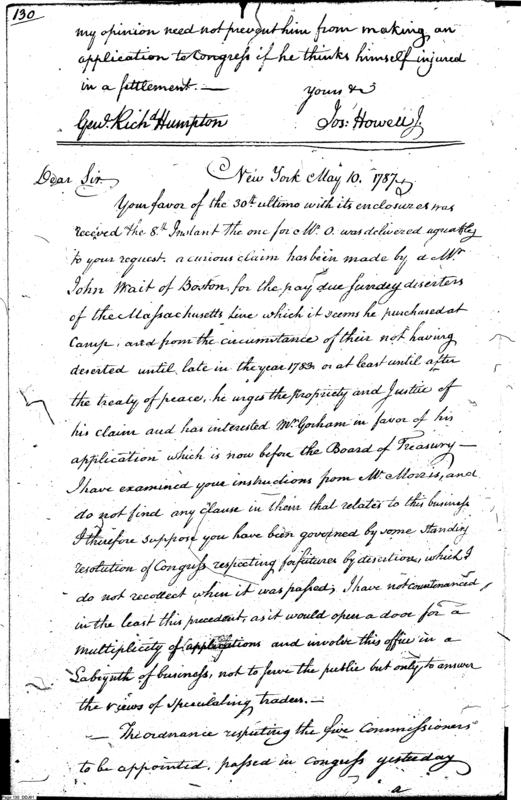 130
my opinion need not prevent him from making an
application to Congress if he thinks himself injured
in a settlement. —
Yours &c
Genl. Richd Humpton
Jos: Howell J.
New York May 10. 1787.
Dear Sir.
Your favor of the 30th ultimo with its enclosures was
received the 8th Instant the one for Mr. O. was delivered agreeably
to your request. a curious claim has been made by a Mr
John Wait of Boston, for the pay due sundry deserters
of the Massachusetts Line which it seems he purchased at
Camp, and from the circumstance of their not having
deserted until late in the year 1783 or at least until after
the treaty of peace, he urges the propriety and Justice of
his claim and has interested Mr. Gorham in favor of his
application which is now before the Board of Treasury —
I have examined your instructions from Mr. Morris, and
do not find any clause in them that relates to this business
I therefore suppose you have been governed by some standing
resolution of Congress respecting forfeitures by desertion, which I
do not recollect when it was passed, I have not countenanced
in the least this precedent, as it would open a door for a
multiplicity of applications and involve this office in a
Labyrinth of business, not to serve the public but only to answer
the views of speculating traders. —
— The ordinance respecting the five Commissioners
to be appointed, passed in Congress yesterday
a